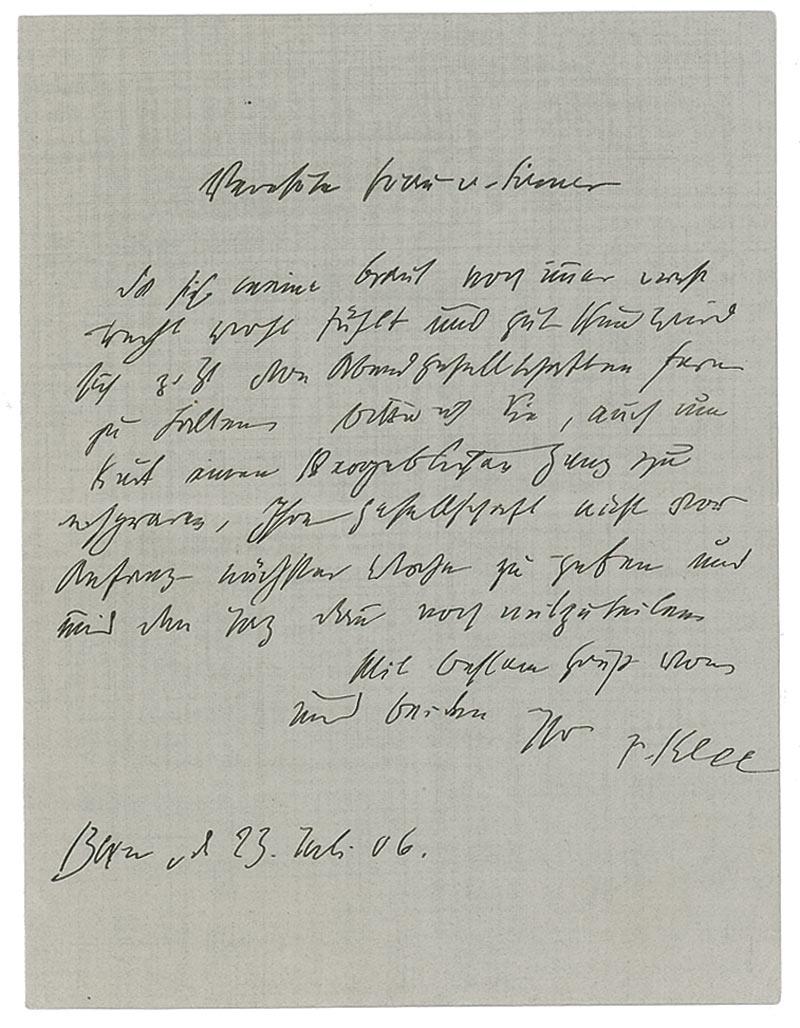 Verehrte Frau v. Sinner
Da sich meine Braut noch immer nicht
recht wohl fühlt und gut thun wird
sich z. Zt den Abendgesellschaften fern
zu halten bitte ich Sie, auch um
Kurt einen vergeblichen Gang zu
ersparen, Ihre Gesellschaft nicht vor
Anfang nächster Woche zu geben und
mir den Tag dann noch mitzuteilen
Mit bestem Gruss von
uns beiden Ihr P. Klee
Bern, d 23. Juli. 06.